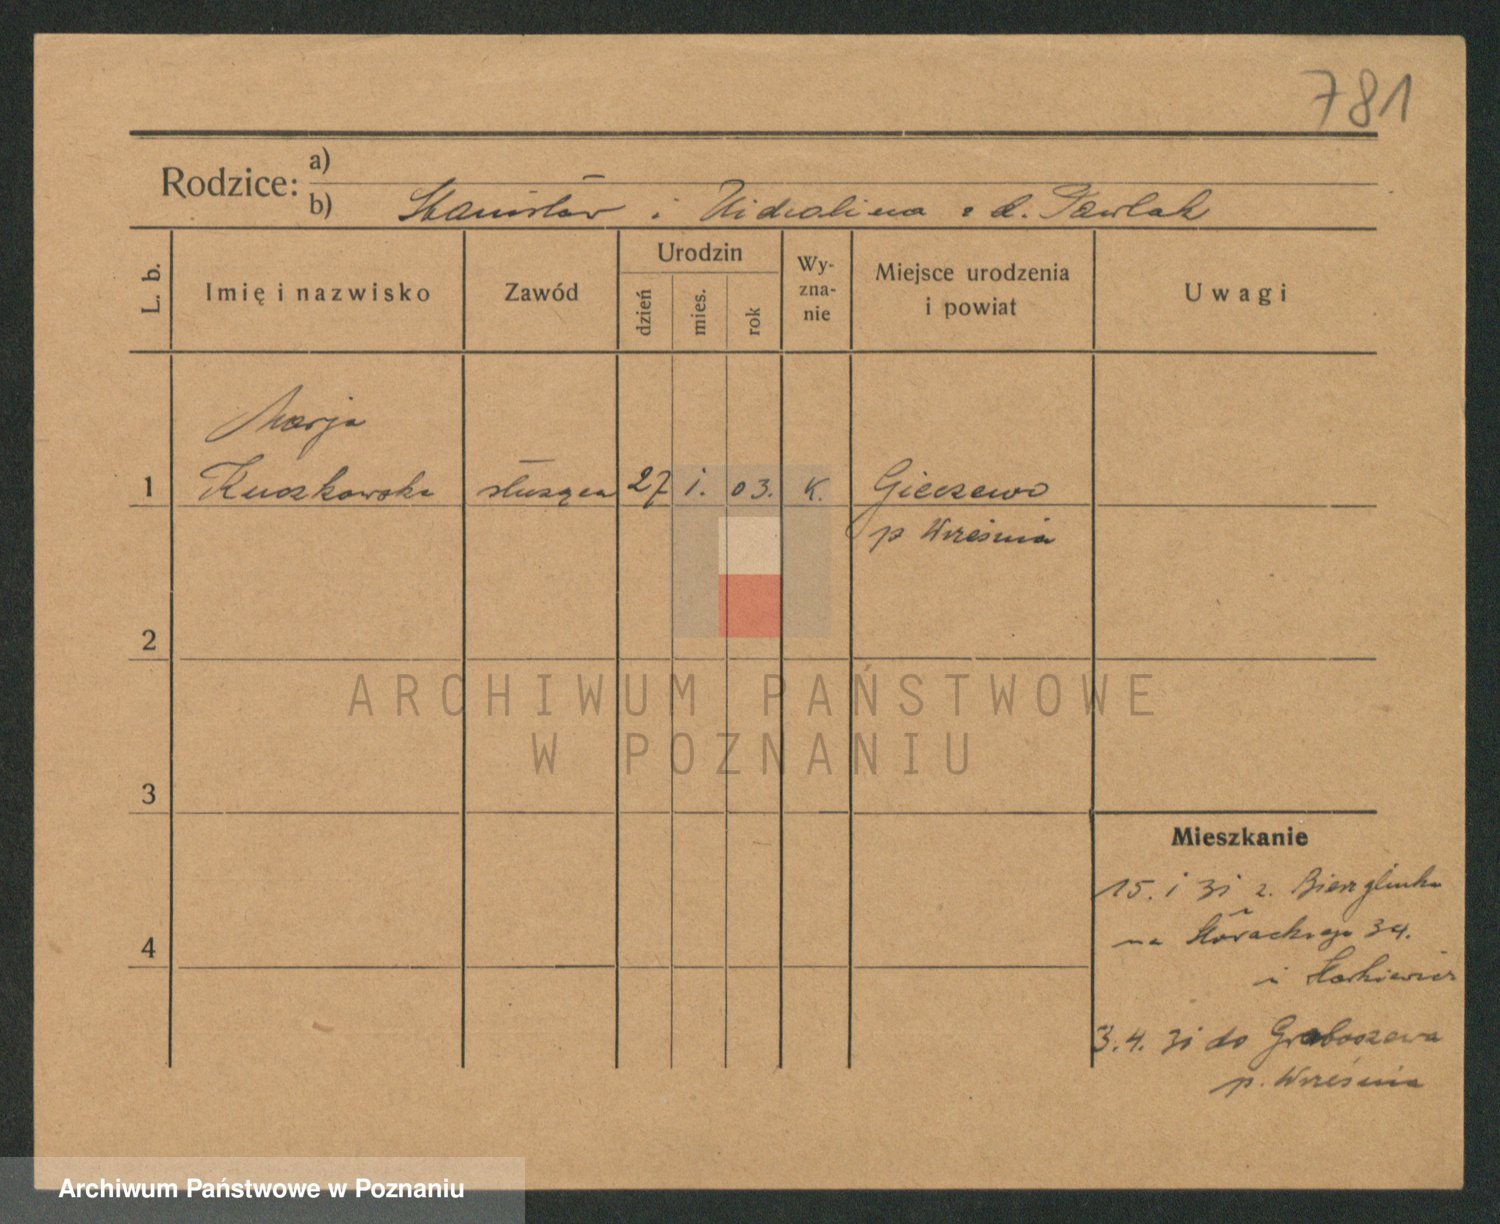 781
Rodzice: a)
b) Stanisław i z d. Pawlak
L. b. Imię i nazwisko Zawód Urodzin dzień mies. rok Wy-zna-nie Miejsce urodzenia i powiat Uwagi
Marja
1 Kuczkowska służąca 27 i. 03. K. Gieczewo
p Września
2
ARCHIWUM PAŃSTWOWE
W POZNANIU
3
Mieszkanie
15. i 31 z. Bierzglinka
na 34.
4
i
3. 4. 31 do Graboszewa
p. Września
Archiwum Państwowe w Poznaniu